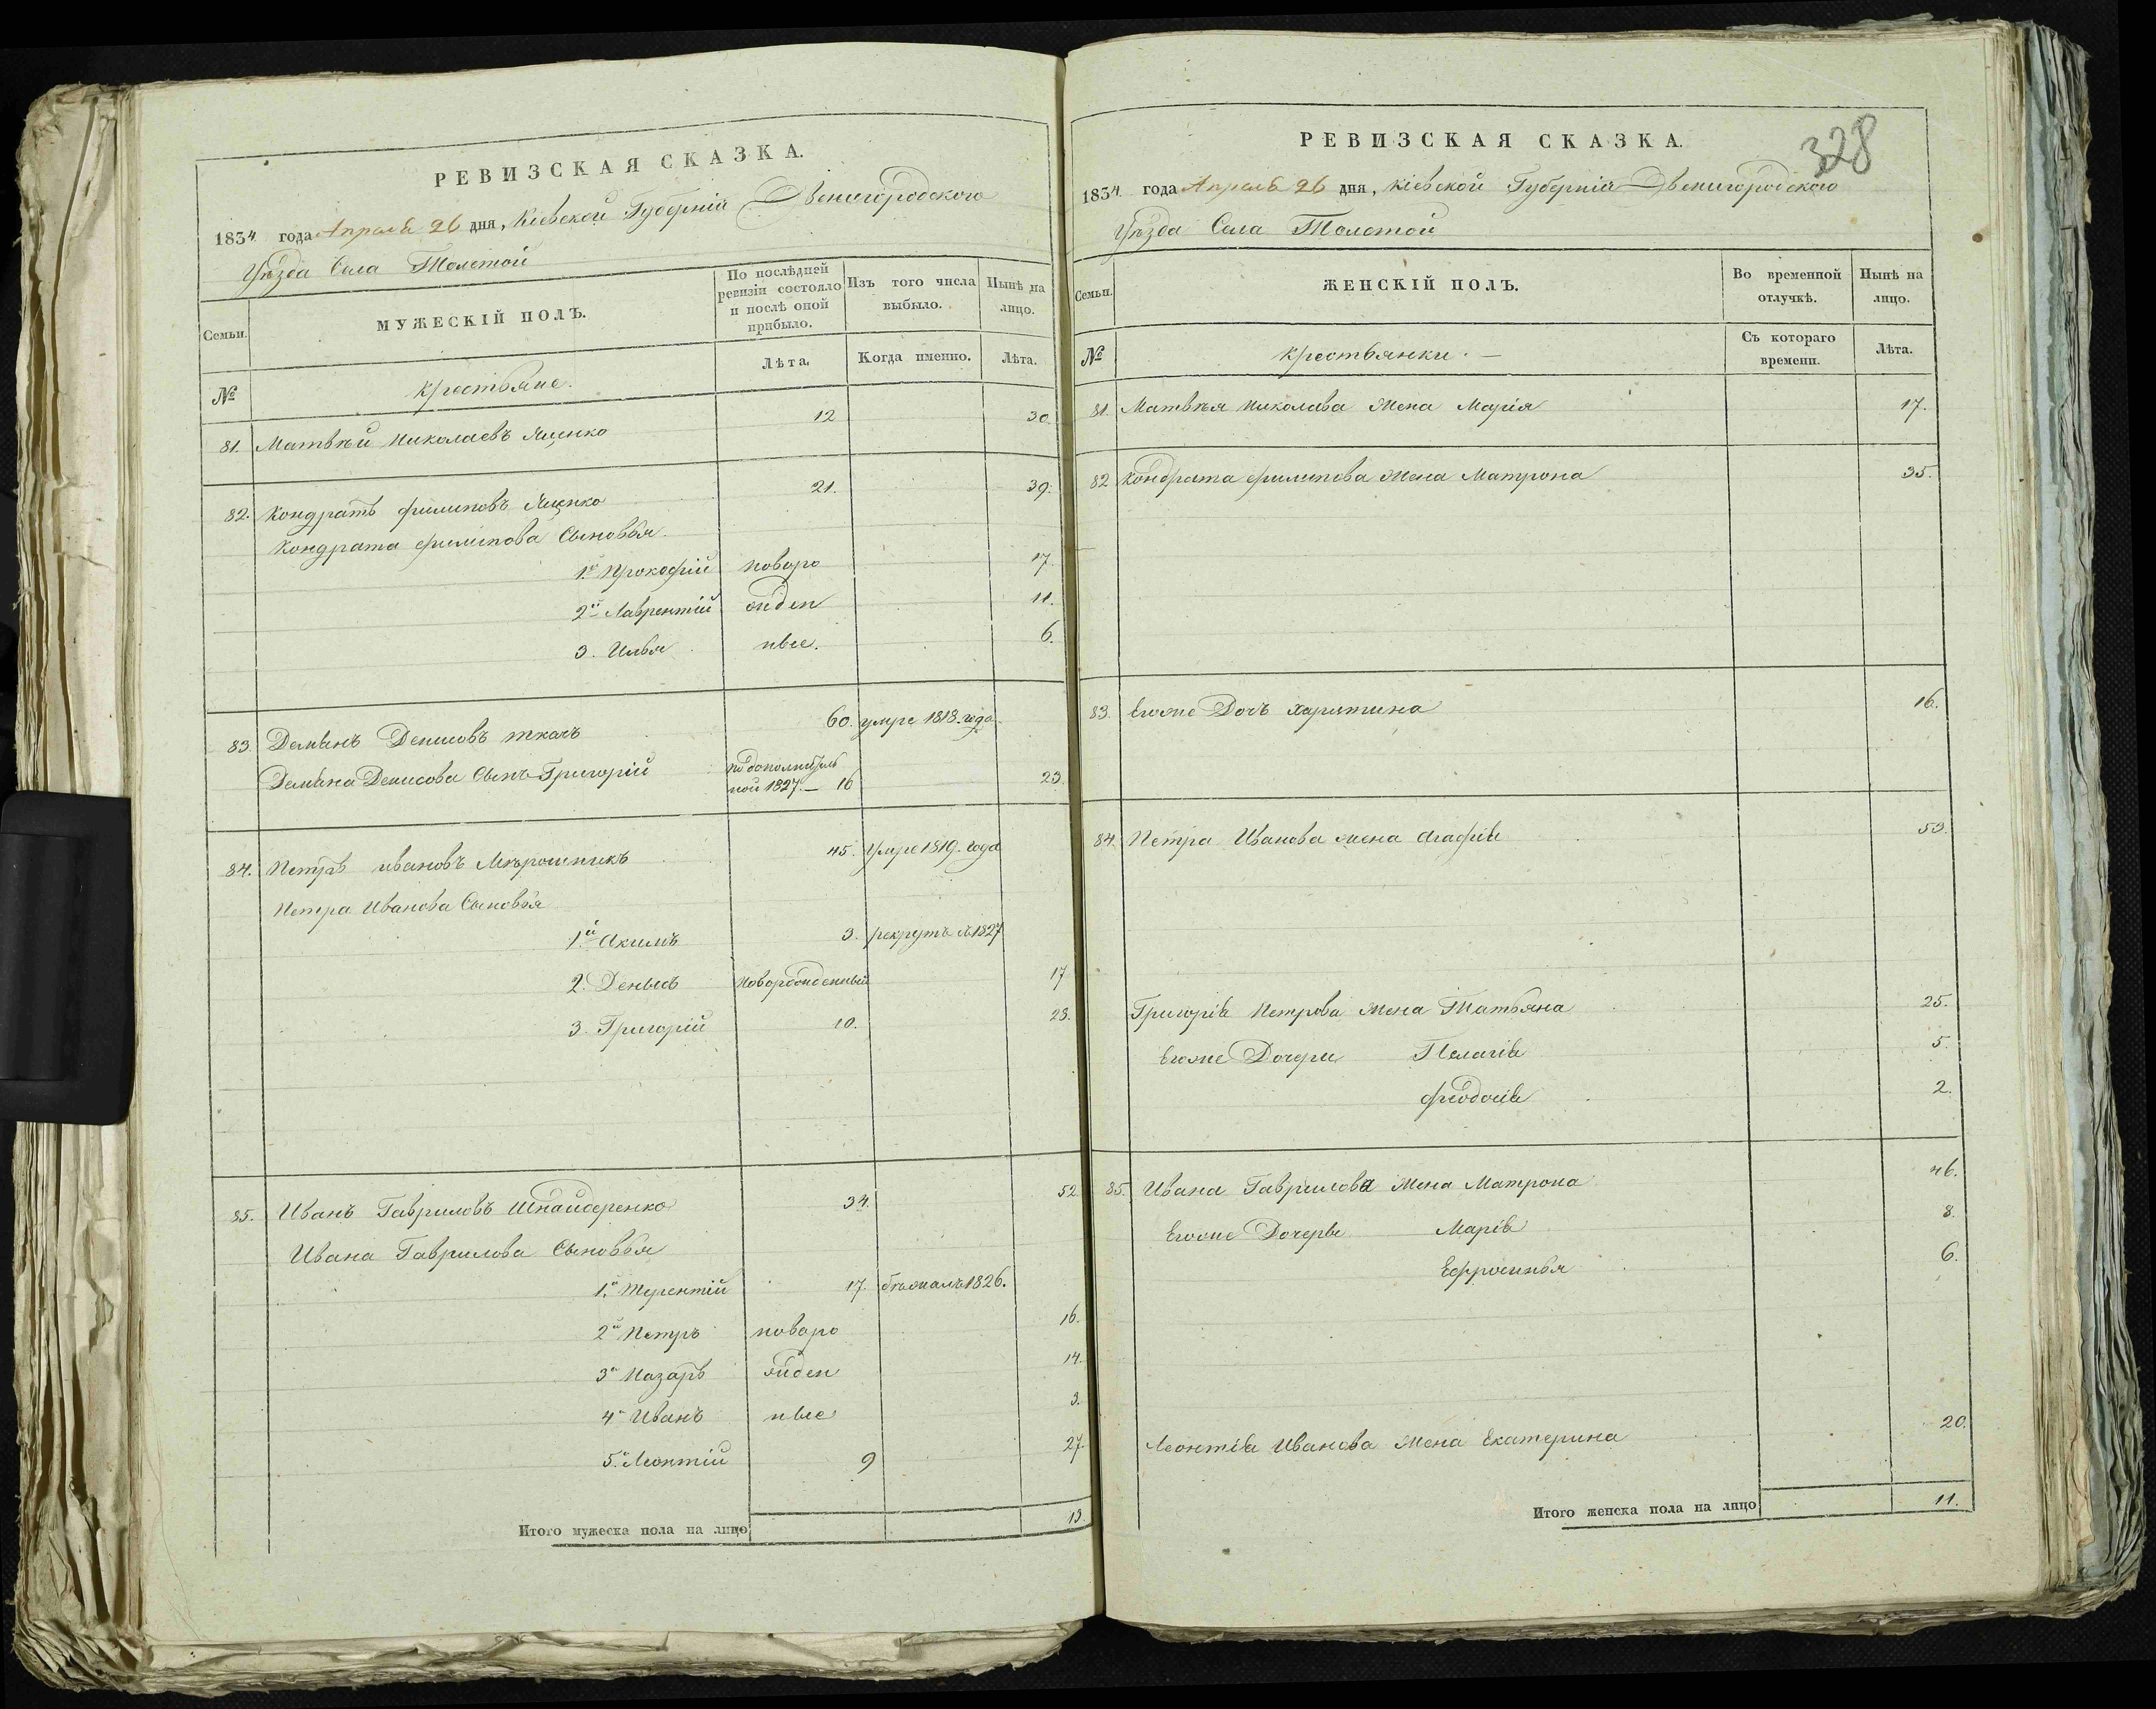 РЕВИЗСКАЯ СКАЗКА.
1834 года Апреля 26 дня, Кіевской Губерніи Звенигородского
Уѣзда Села Толстой
Семьи.
МУЖЕСКІЙ ПОЛЪ.
По послѣдней ревизіи состояло и послѣ оной прибыло.
Изъ того числа выбыло.
Нынѣ на лицо.
№
Крестьяне.
Лѣта.
Когда именно.
Лѣта.
81. Матвѣй Николаевъ Яценко 12 30.
82. Кондратъ Филиповъ Яценко 21. 39.
Кондрата Филипова Сыновья
1й Прокофій новоро 17.
2й Лаврентій жден 11.
3. Илья ные. 6.
83. Демьянъ Денисовъ ткачъ 60. умре 1818. года.
Демьяна Денисова Сынъ Григорій по дополнитель
ной 1827. — 16 23.
84. Петръ Ивановъ Мѣрошникъ 45. Умре 1819. года
Петра Иванова Сыновья
1й Акимъ 3. рекрутъ 1827
2. Денысъ Новорожденный 17
3. Григорій 10. 28.
85. Иванъ Гавриловъ Шнайдеренко 34. 52.
Ивана Гаврилова Сыновья
1й Терентій 17. бѣжалъ 1826.
2й Петръ новоро 16.
3й Назаръ жден 14.
4й Иванъ ные 3.
5й Леонтій 9 27.
Итого мужеска пола на лицо 13.
328
РЕВИЗСКАЯ СКАЗКА.
1834 года Апреля 26 дня, Кіевской Губерніи Звенигородского
Уѣзда Села Толстой
Семьи.
ЖЕНСКІЙ ПОЛЪ.
Во временной отлучкѣ.
Нынѣ на лицо.
№
Крестьянки. —
Съ котораго времени.
Лѣта.
81. Матвѣя Николаева Жена Марія 17.
82 Кондрата Филипова Жена Матрона 35.
83. Егоже Дочь Харитина 16.
84. Петра Иванова Жена Агафія 53.
Григорія Петрова Жена Татьяна 25.
Егоже Дочери Пелагія 5.
Феодосія 2.
85. Ивана Гаврилова Жена Матрона 46.
Егоже Дочеры Марія 8.
Ефросинья 6.
Леонтія Иванова Жена Екатерина 20.
Итого женска пола на лицо 11.